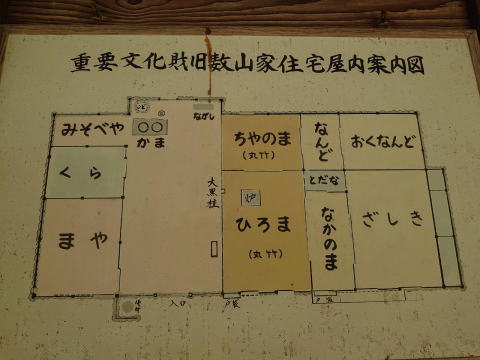 重要文化財旧数山家住宅屋内案内図
みそべや
かま
ながし
ちやのま
(丸竹)
なんど
おくなんど
くら
とだな
大黒柱
炉
まや
ひろま
(丸竹)
なかのま
ざしき
入口
戸袋
戸袋